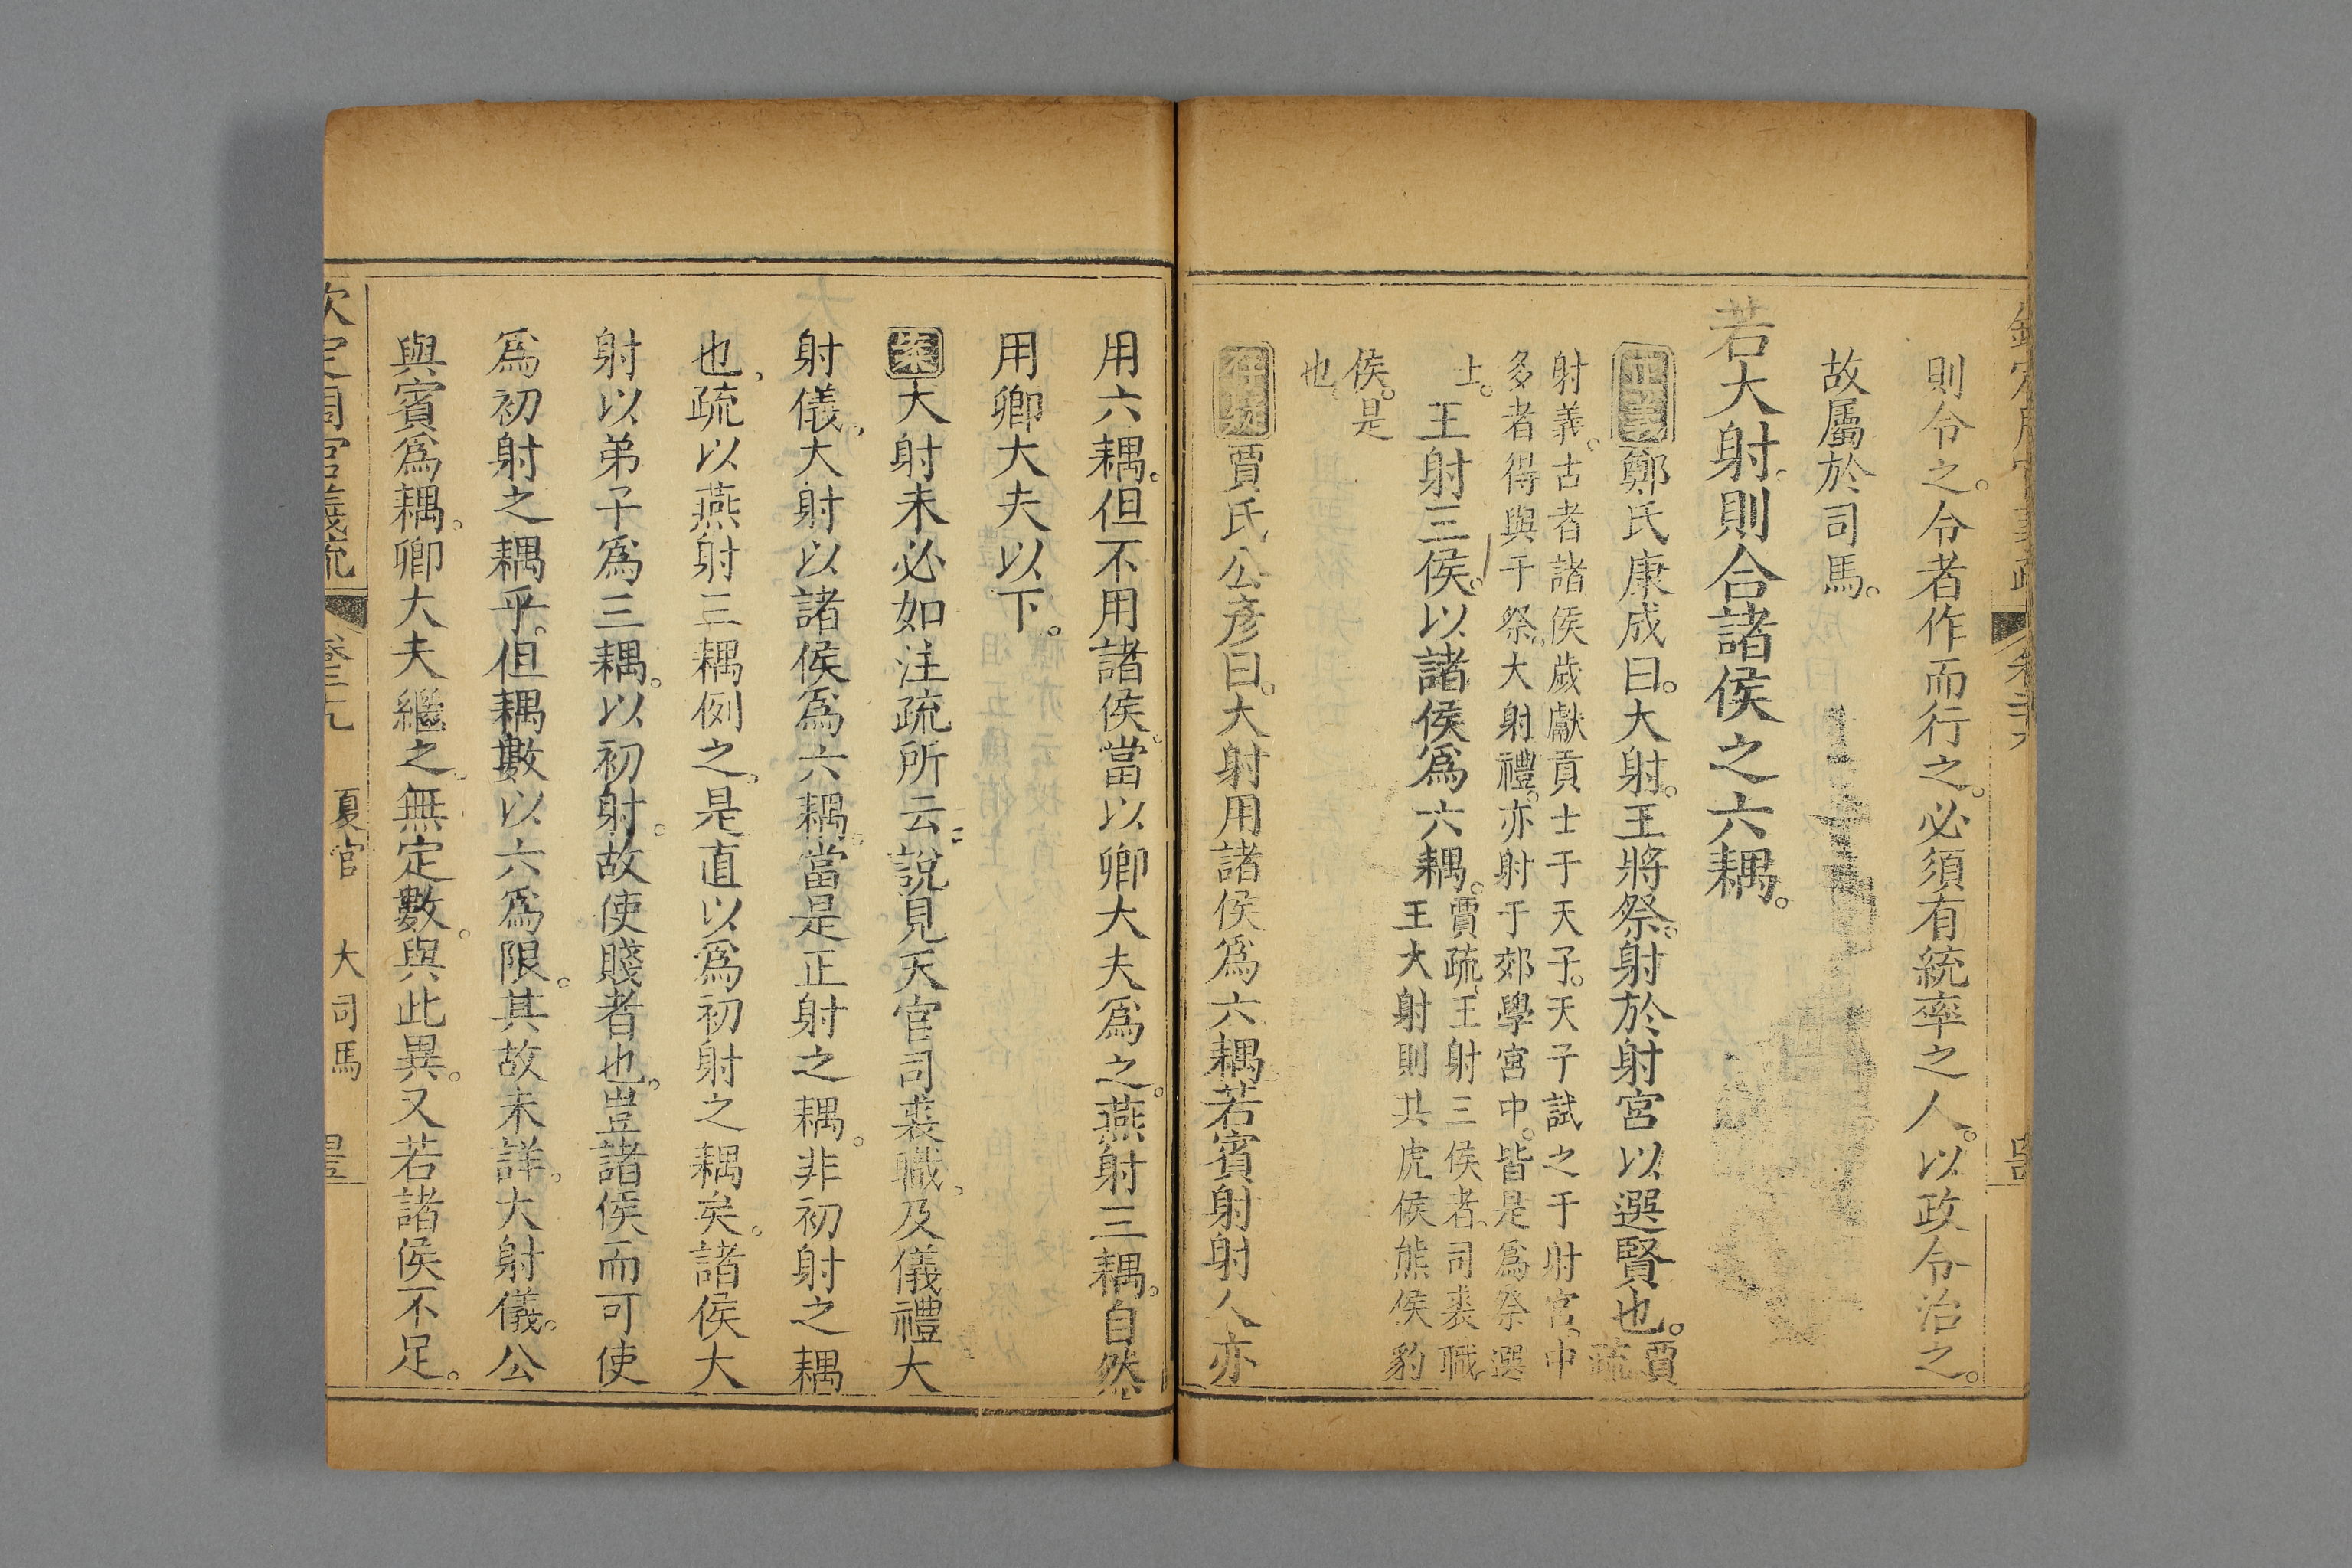 則令之。令者作而行之。必須有統率之人。以政令治之。
故屬於司馬。
若大射。則合諸侯之六耦。
正義鄭氏康成曰。大射。王將祭。射於射宮以選賢也。賈疏
射義。古者諸侯歲獻貢士于天子。天子試之于射宮、中
多者得與于祭、大射禮。亦射于郊學宮中。皆是爲祭選
上。王射三侯。以諸侯爲六耦。賈疏、王射三侯者、司裘職、
王大射則共虎侯熊侯豹
侯。是
也、
存疑賈氏公彥曰。大射用諸侯爲六耦。若賓射射人亦
用六耦。但不用諸侯。當以卿大夫爲之。燕射三耦。自然
用卿大夫以下。
案大射未必如注疏所云、說見天官司裘職、及儀禮大
射儀、大射以諸侯爲六耦。當是正射之耦。非初射之耦
也、疏以燕射三耦例之、是直以爲初射之耦矣。諸侯大
射以弟子爲三耦。以初射。故使賤者也。豈諸侯而可使
爲初射之耦乎。但耦數以六爲限。其故未詳。大射儀。公
與賓爲耦。卿大夫繼之、無定數。與此異。又若諸侯不足。
欽定周官義疏 卷二十九 夏官 大司馬